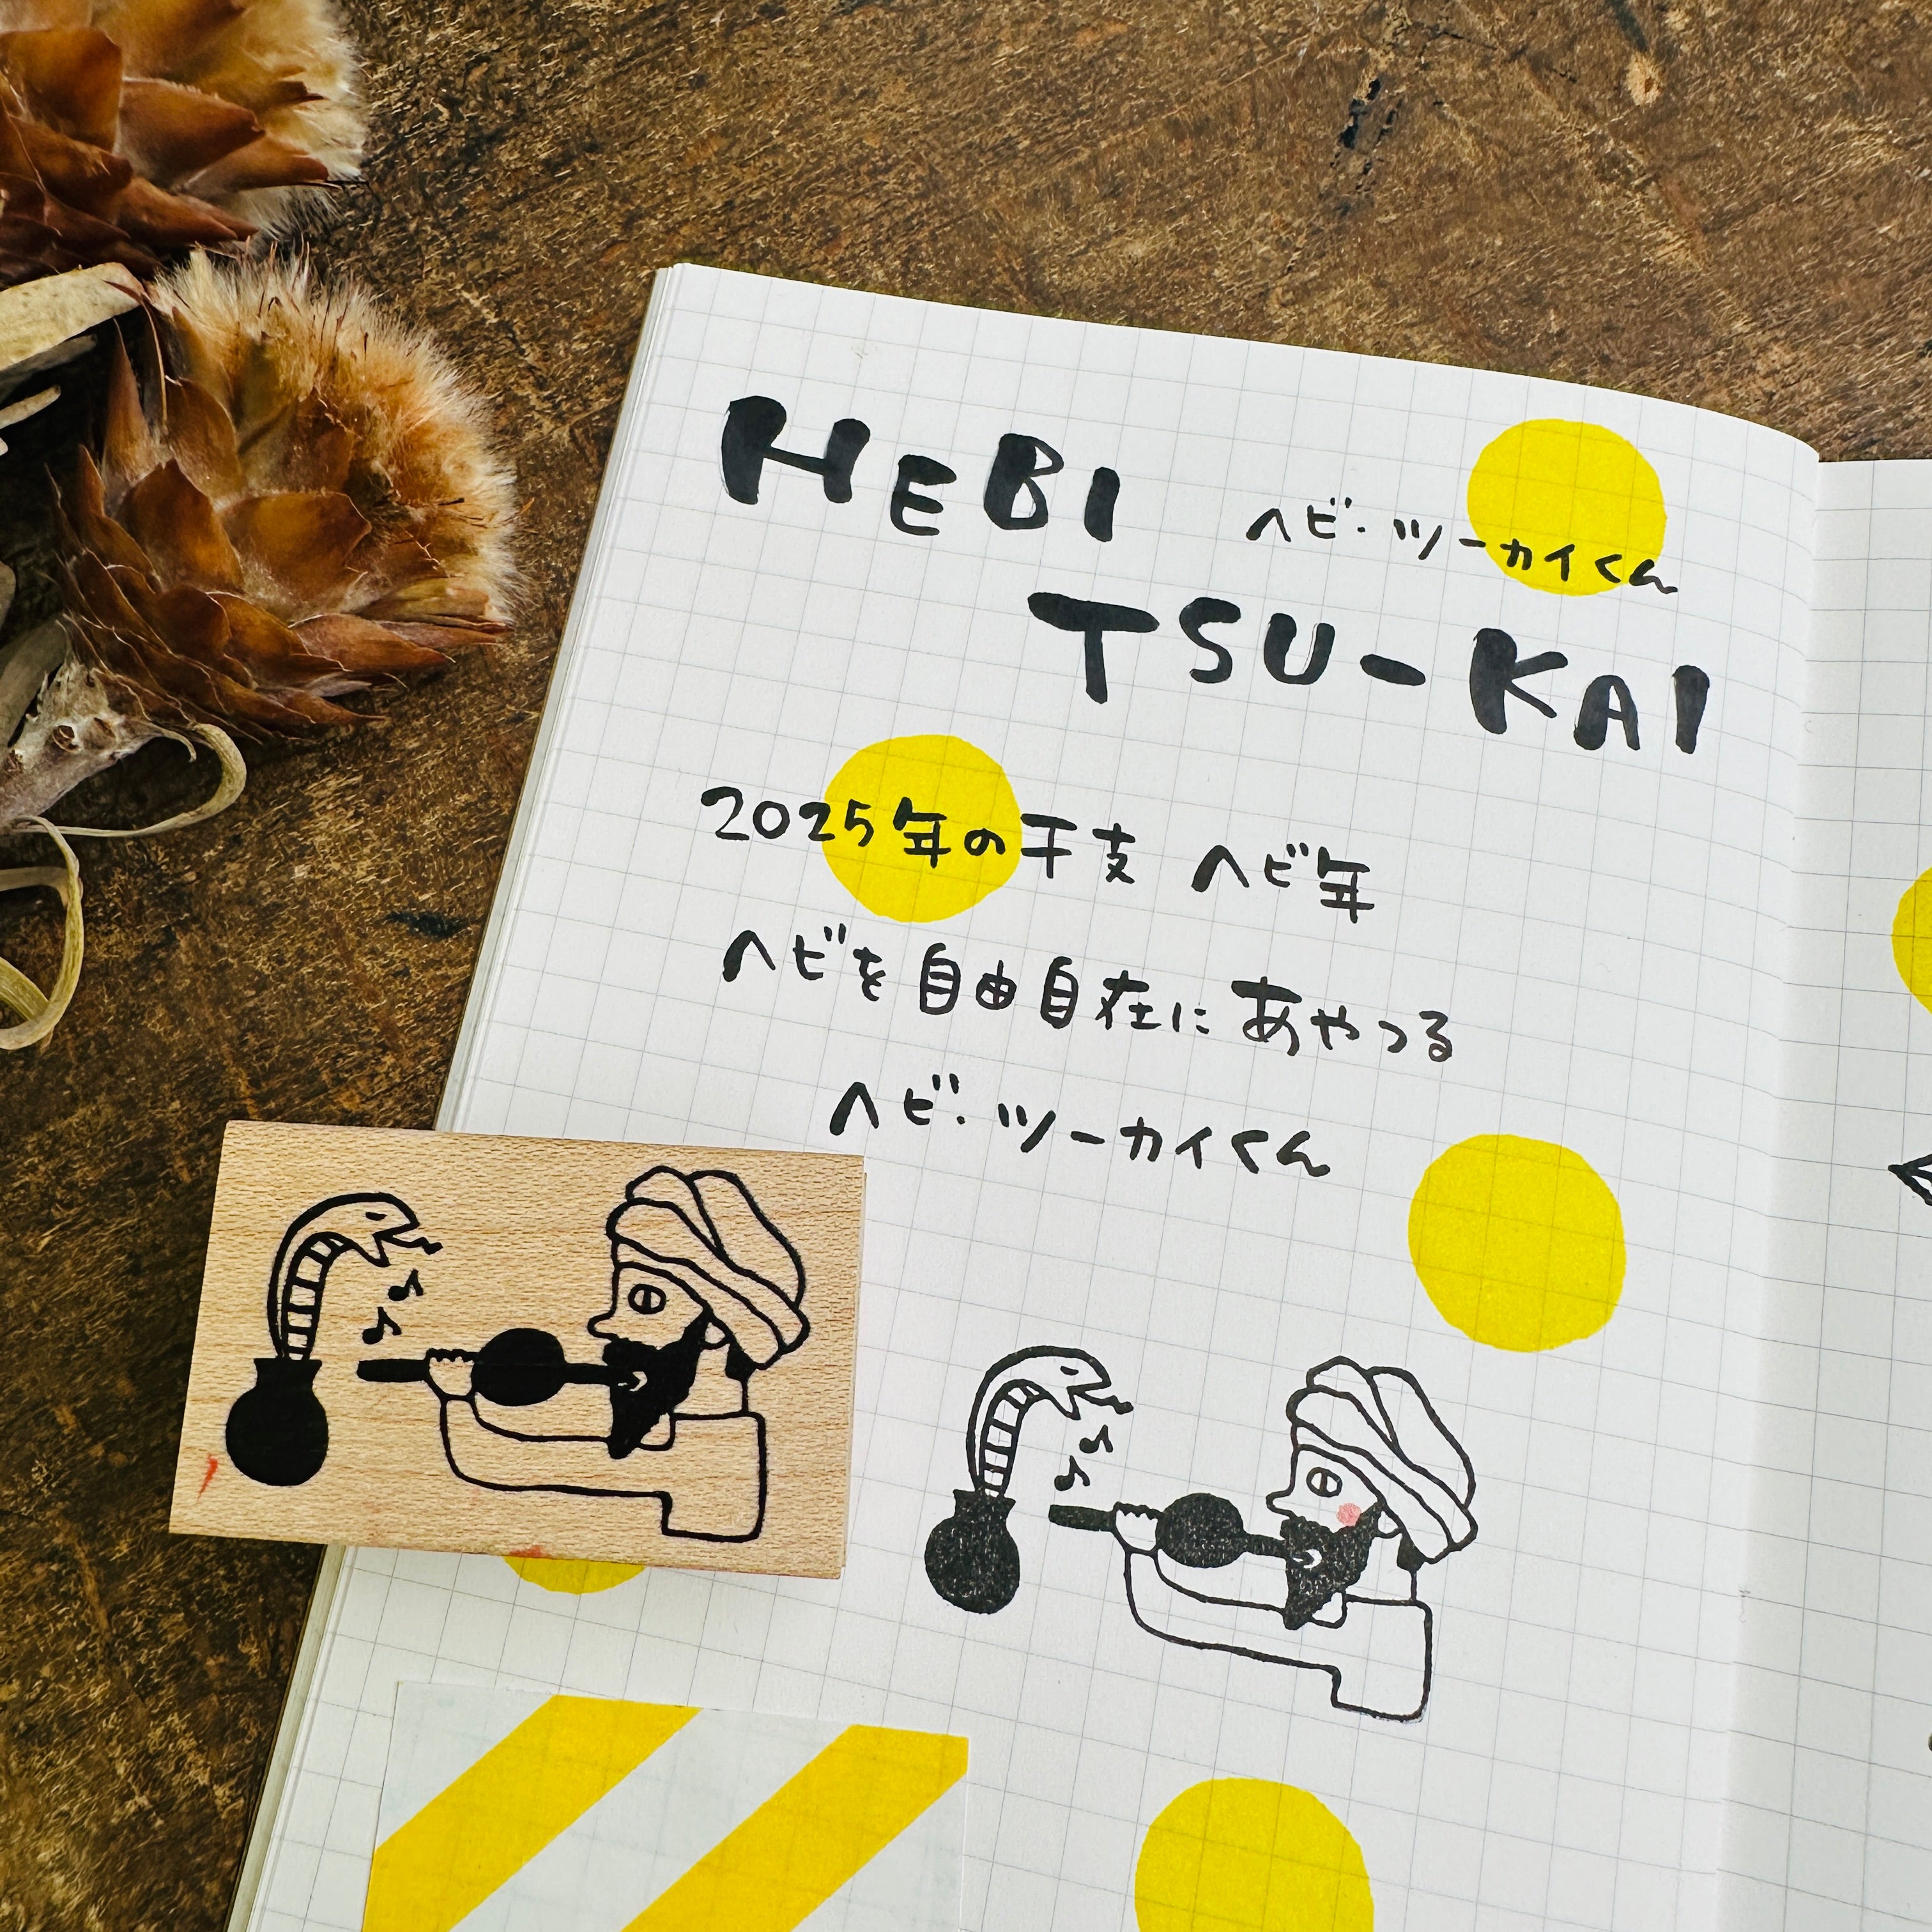 HEBI
ヘビ・ツーカイくん
TSU-KAI
2025年の干支 ヘビ年
ヘビを自由自在にあやつる
ヘビ・ツーカイくん